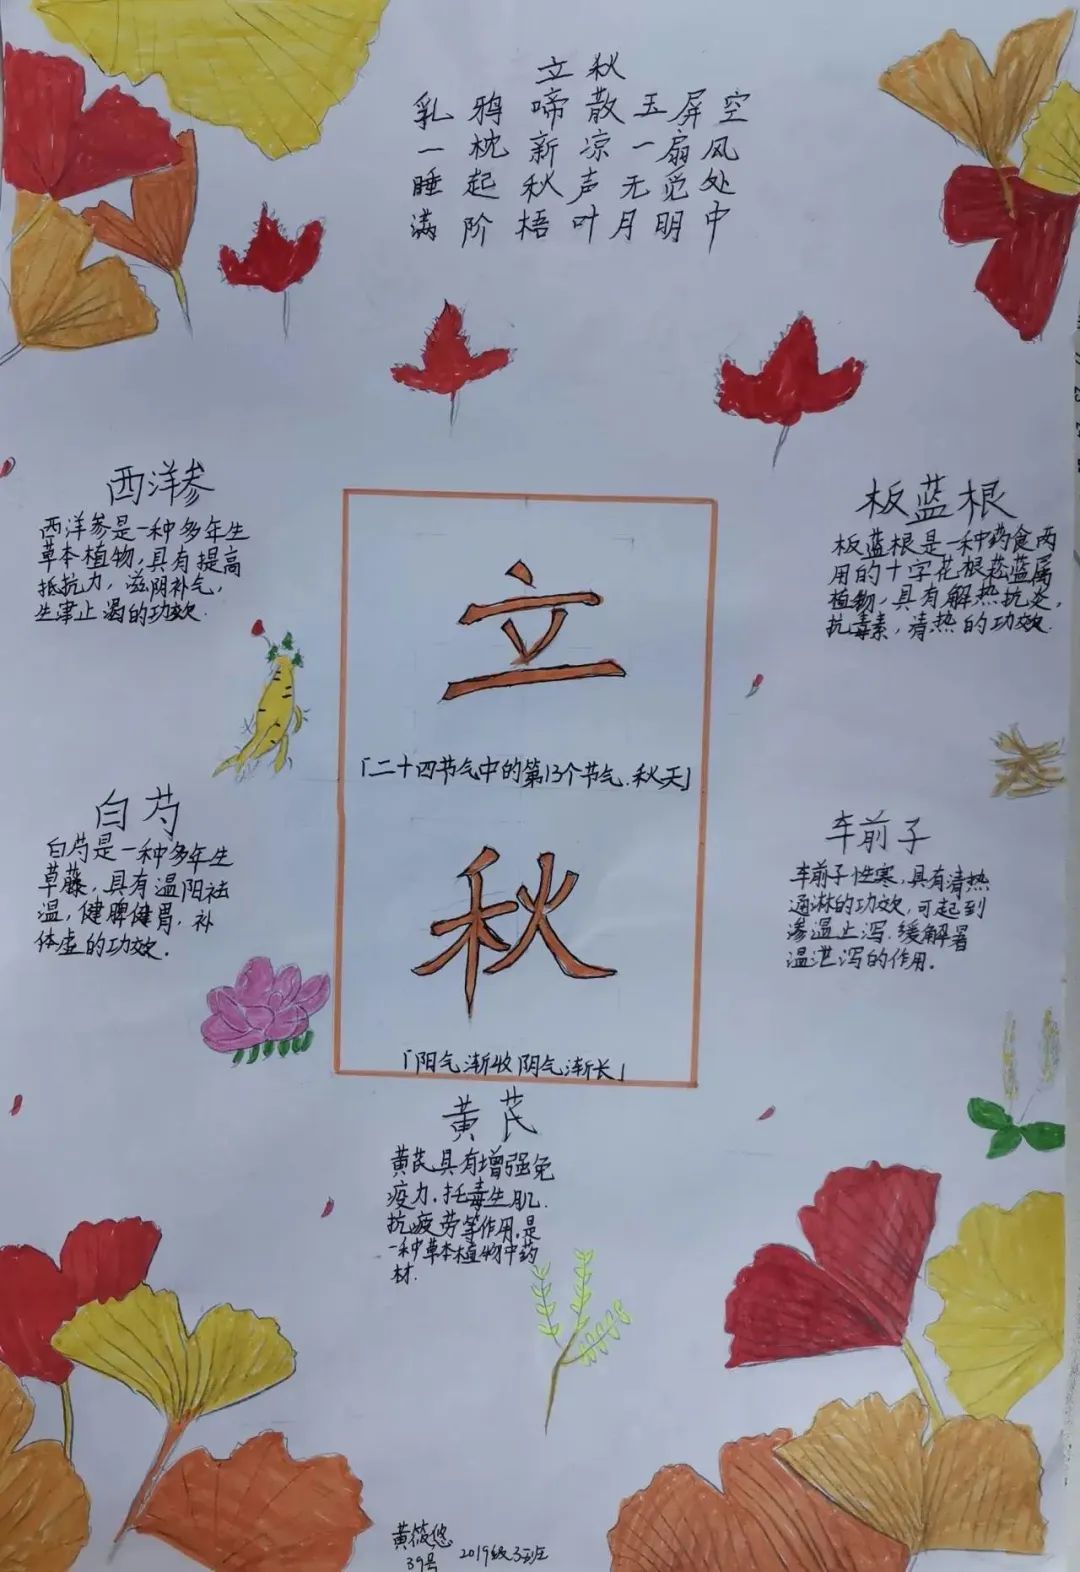 立秋
乳鸦啼散玉屏空
一枕新凉一扇风
睡起秋声无觅处
满阶梧叶月明中
西洋参
西洋参是一种多年生
草本植物,具有提高
抵抗力,滋阴补气,
生津止渴的功效.
板蓝根
板蓝根是一种药食两
用的十字花根菘蓝属
植物,具有解热抗炎,
抗毒素,清热的功效.
立
「二十四节气中的第13个节气.秋天」
秋
「阳气渐收阴气渐长」
白芍
白芍是一种多年生
草藤,具有温阳祛
温,健脾健胃,补
体虚的功效.
车前子
车前子性寒,具有清热
通淋的功效,可起到
渗温止泻.缓解暑
温泄泻的作用.
黄芪
黄芪具有增强免
疫力.托毒生肌.
抗疲劳等作用,是
一种草本植物中药
材.
黄筱悠
39号 2019级3班